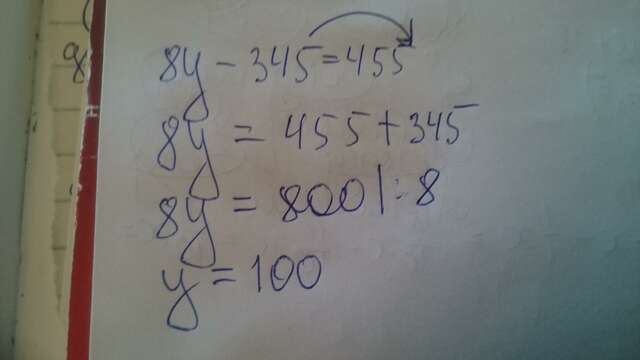 8y - 345 = 455
8y = 455 + 345
8y = 800 |: 8
y = 100